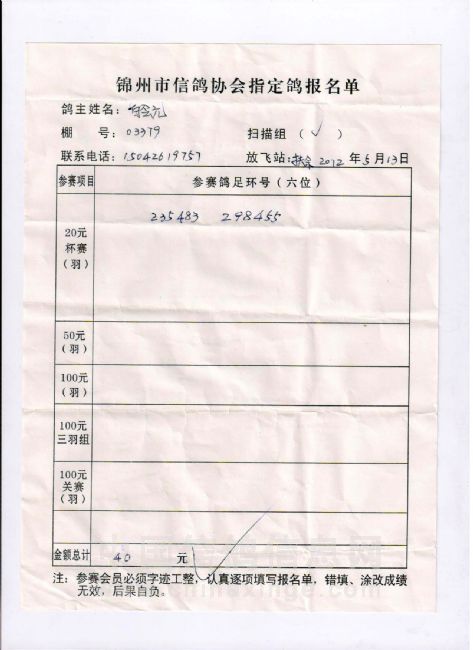 锦州市信鸽协会指定鸽报名单
鸽主姓名：
棚 号：03379 扫描组（√）
联系电话：15042619757 放飞站： 2012 年 5 月 13 日
参赛项目 参赛鸽足环号（六位）
20元
杯赛
（羽） 235483 298455
50元
（羽）
100元
（羽）
100元
三羽组
100元
关赛
（羽）
金额总计 40 元
注：参赛会员必须字迹工整，认真逐项填写报名单，错填、涂改成绩
无效，后果自负。